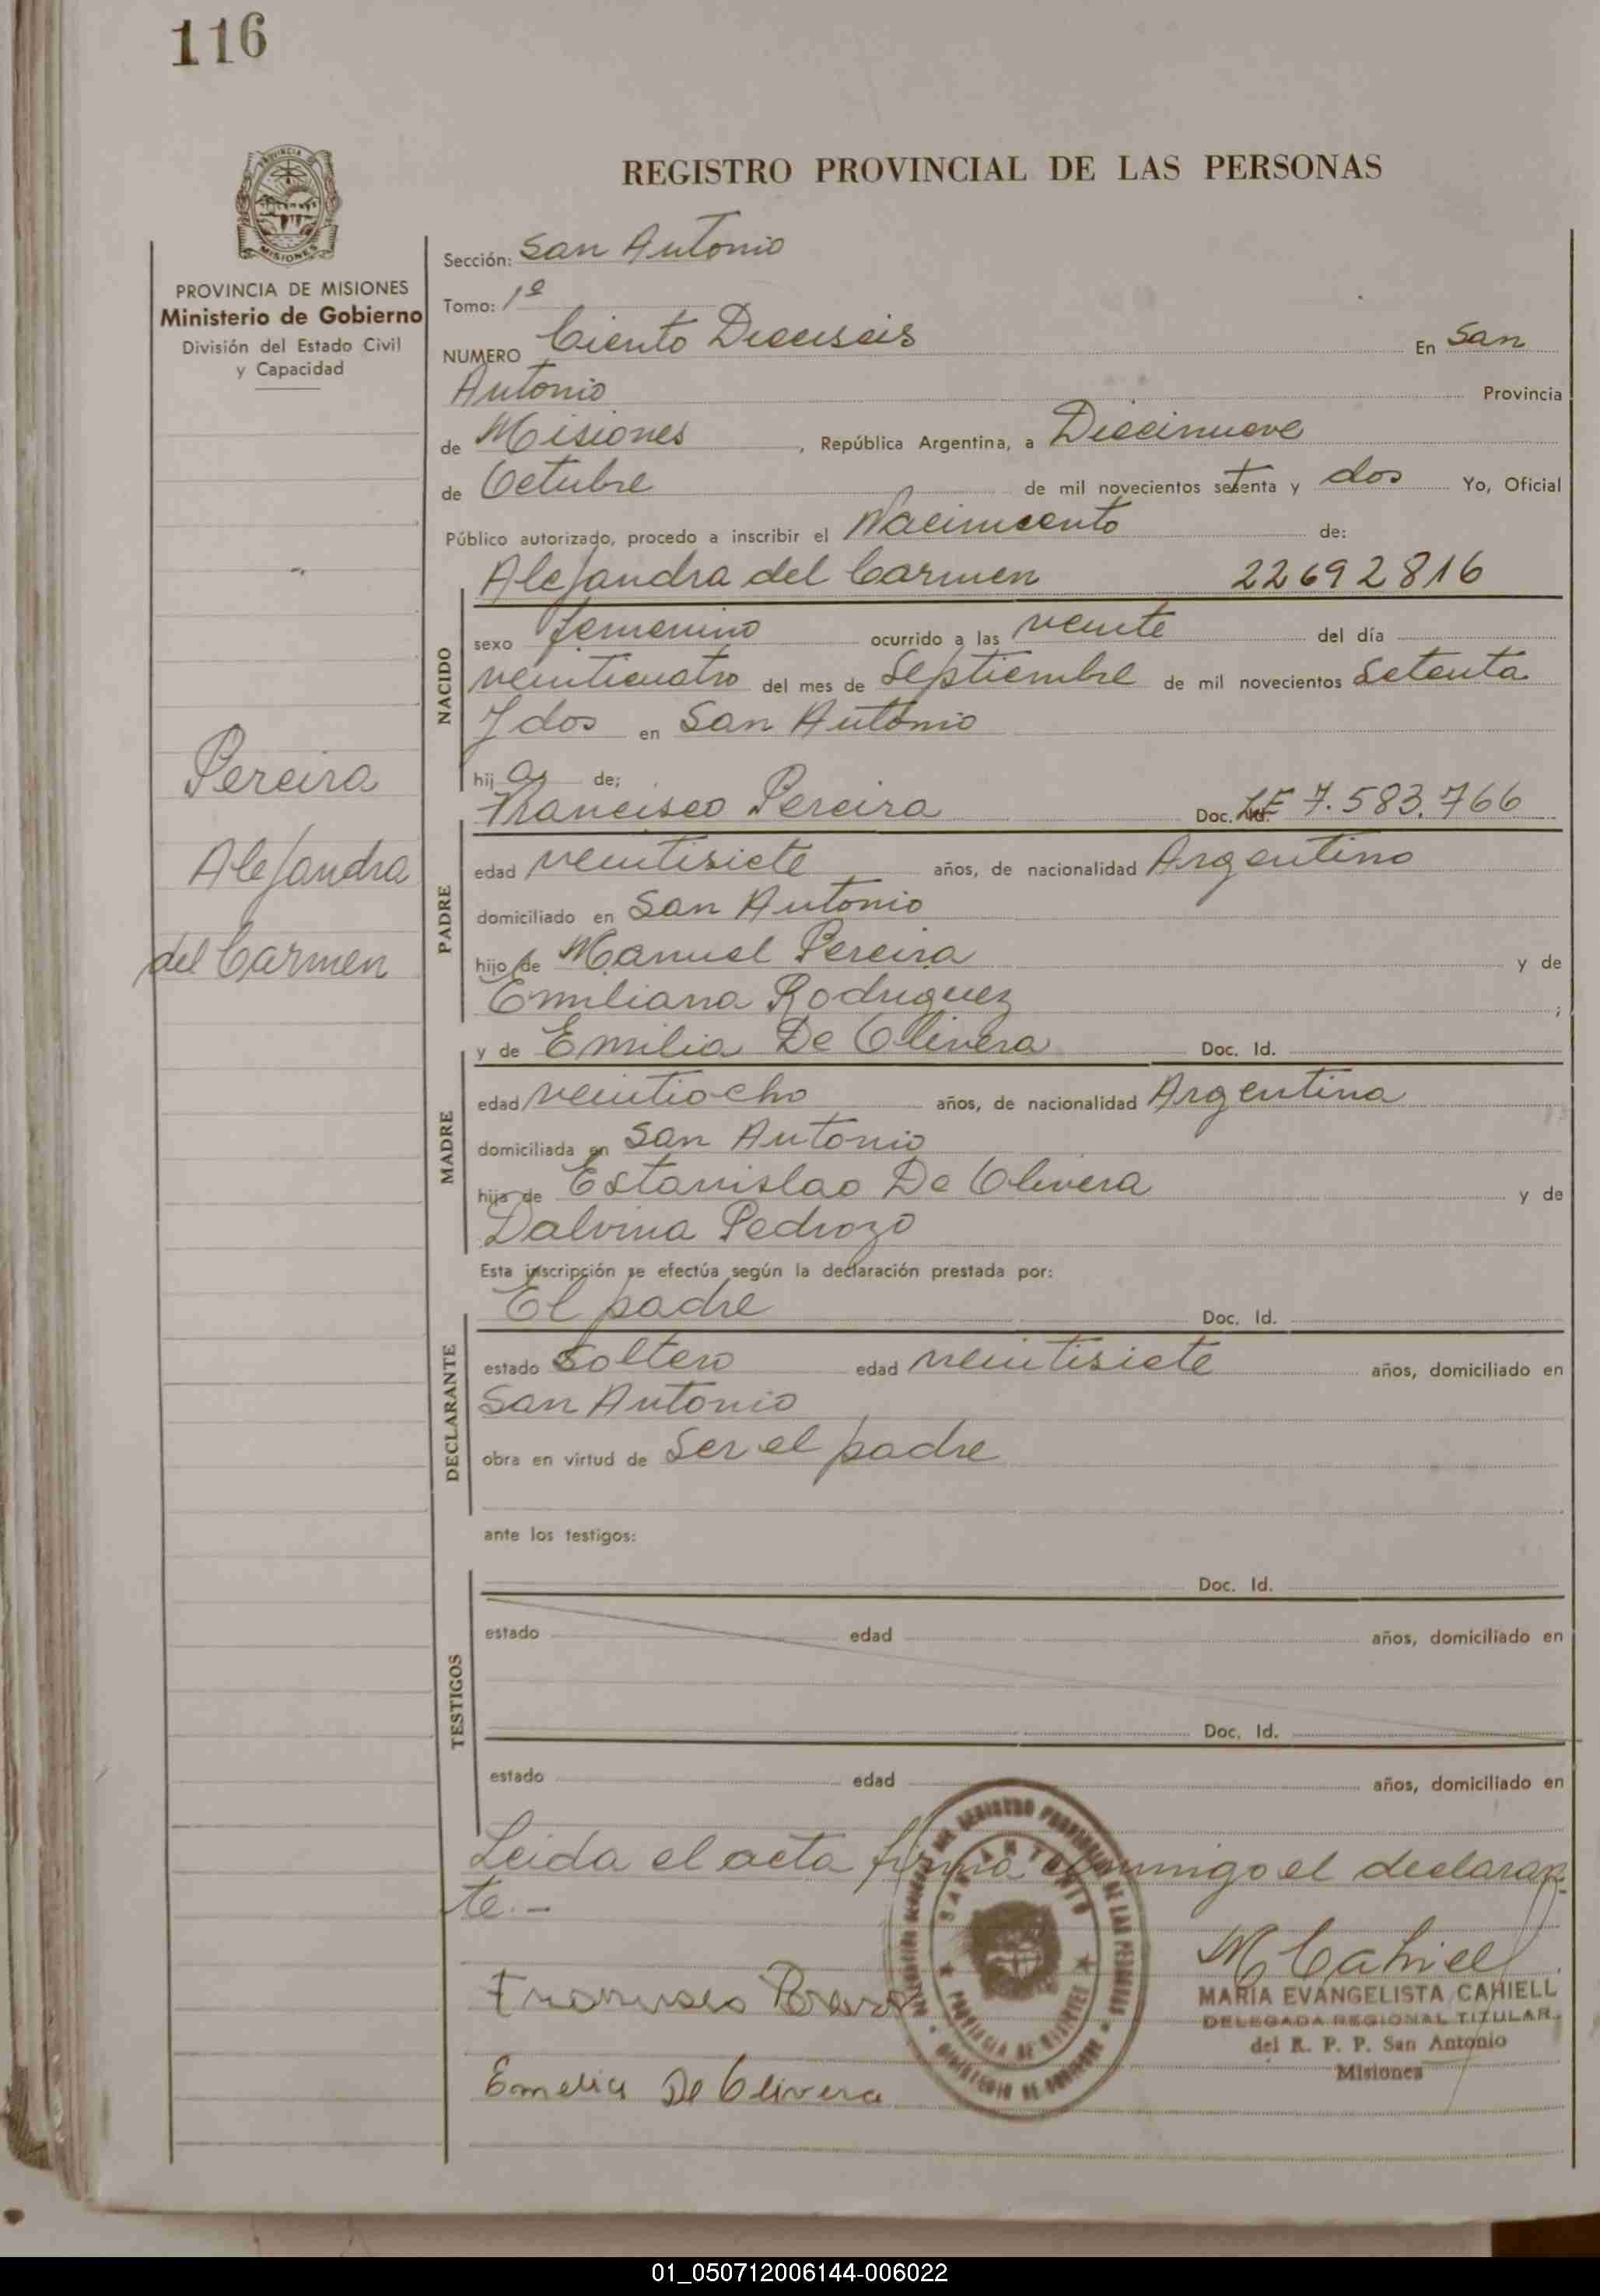 116
REGISTRO PROVINCIAL DE LAS PERSONAS
PROVINCIA DE MISIONES
Ministerio de Gobierno
División del Estado Civil
y Capacidad
Pereira
Alejandra
del Carmen
Sección: San Antonio
Tomo: 1º
NUMERO Ciento Dieciseis En San
Antonio Provincia
de Misiones, República Argentina, a Diecinueve
de Octubre de mil novecientos setenta y dos Yo, Oficial
Público autorizado, procedo a inscribir el Nacimiento de:
Alejandra del Carmen 22692816
NACIDO
sexo femenino ocurrido a las veinte del día
veinticuatro del mes de Septiembre de mil novecientos Setenta
y dos en San Antonio
hija de;
Francisco Pereira Doc. LE 7.583.766
PADRE
edad veintisiete años, de nacionalidad Argentino
domiciliado en San Antonio
hijo de Manuel Pereira y de
Emiliana Rodriguez ;
y de Emilia De Olivera Doc. Id.
MADRE
edad veintiocho años, de nacionalidad Argentina
domiciliada en San Antonio
hija de Estanislao De Olivera y de
Dalvina Pedrozo
Esta inscripción se efectúa según la declaración prestada por:
El padre Doc. Id.
DECLARANTE
estado Soltero edad veintisiete años, domiciliado en
San Antonio
obra en virtud de Ser el padre
ante los testigos:
Doc. Id.
TESTIGOS
estado edad años, domiciliado en
Doc. Id.
estado edad años, domiciliado en
Leida el acta firma conmigo el declaran-
te.-
M Cahiell
MARIA EVANGELISTA CAHIELL
DELEGADA REGIONAL TITULAR
del R. P. P. San Antonio
Misiones
Francisco Pereira
Emelia De Olivera
SAN ANTONIO
PROVINCIA DE MISIONES
01_050712006144-006022